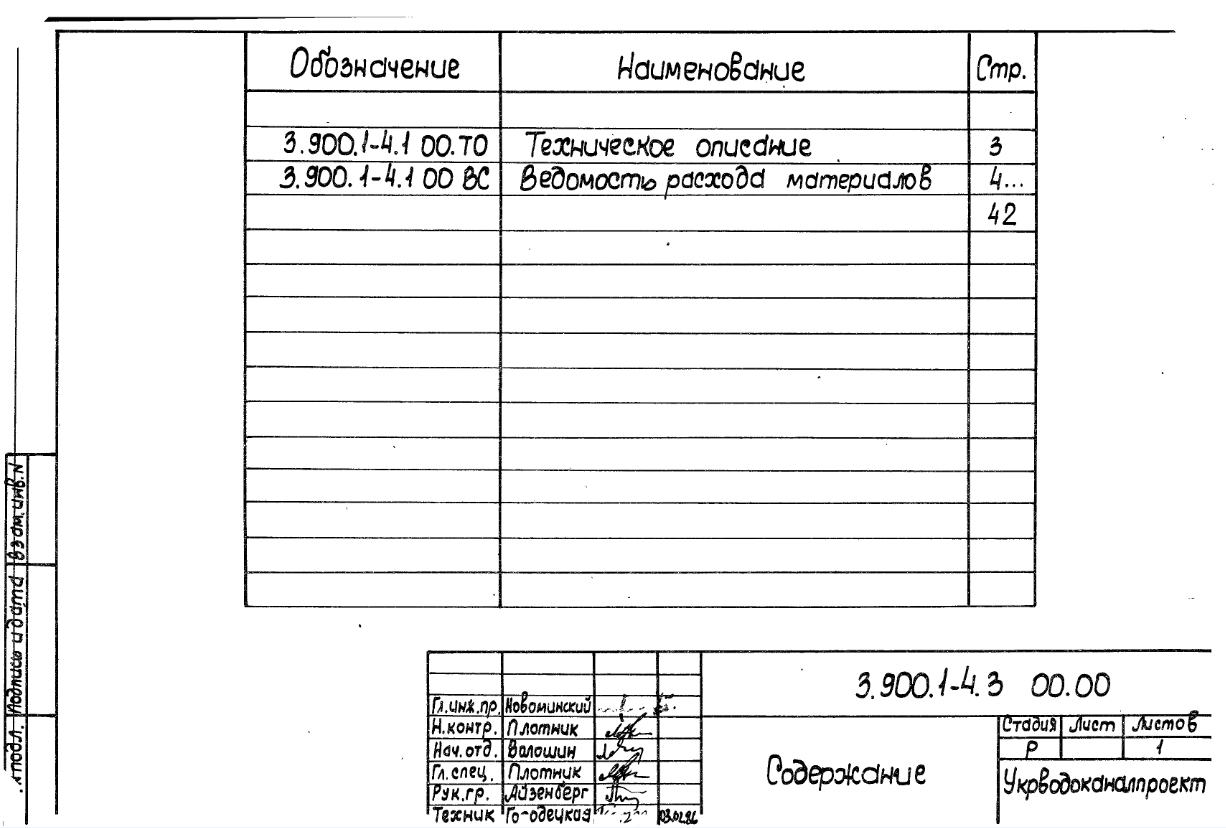 Обозначение Наименование Стр.
3.900.1-4.1 00.ТО Техническое описание 3
3.900.1-4.1 00 ВС Ведомость расхода материалов 4...
42
Взам.инв.N
Подпись и дата
подл.
3.900.1-4.3 00.00
Гл.инж.пр. Новоминский
Н.контр. Плотник
Нач.отд. Волошин
Гл.спец. Плотник
Рук.гр. Айзенберг
Техник
Содержание
Стадия Лист Листов
Р 1
Укрводоканалпроект